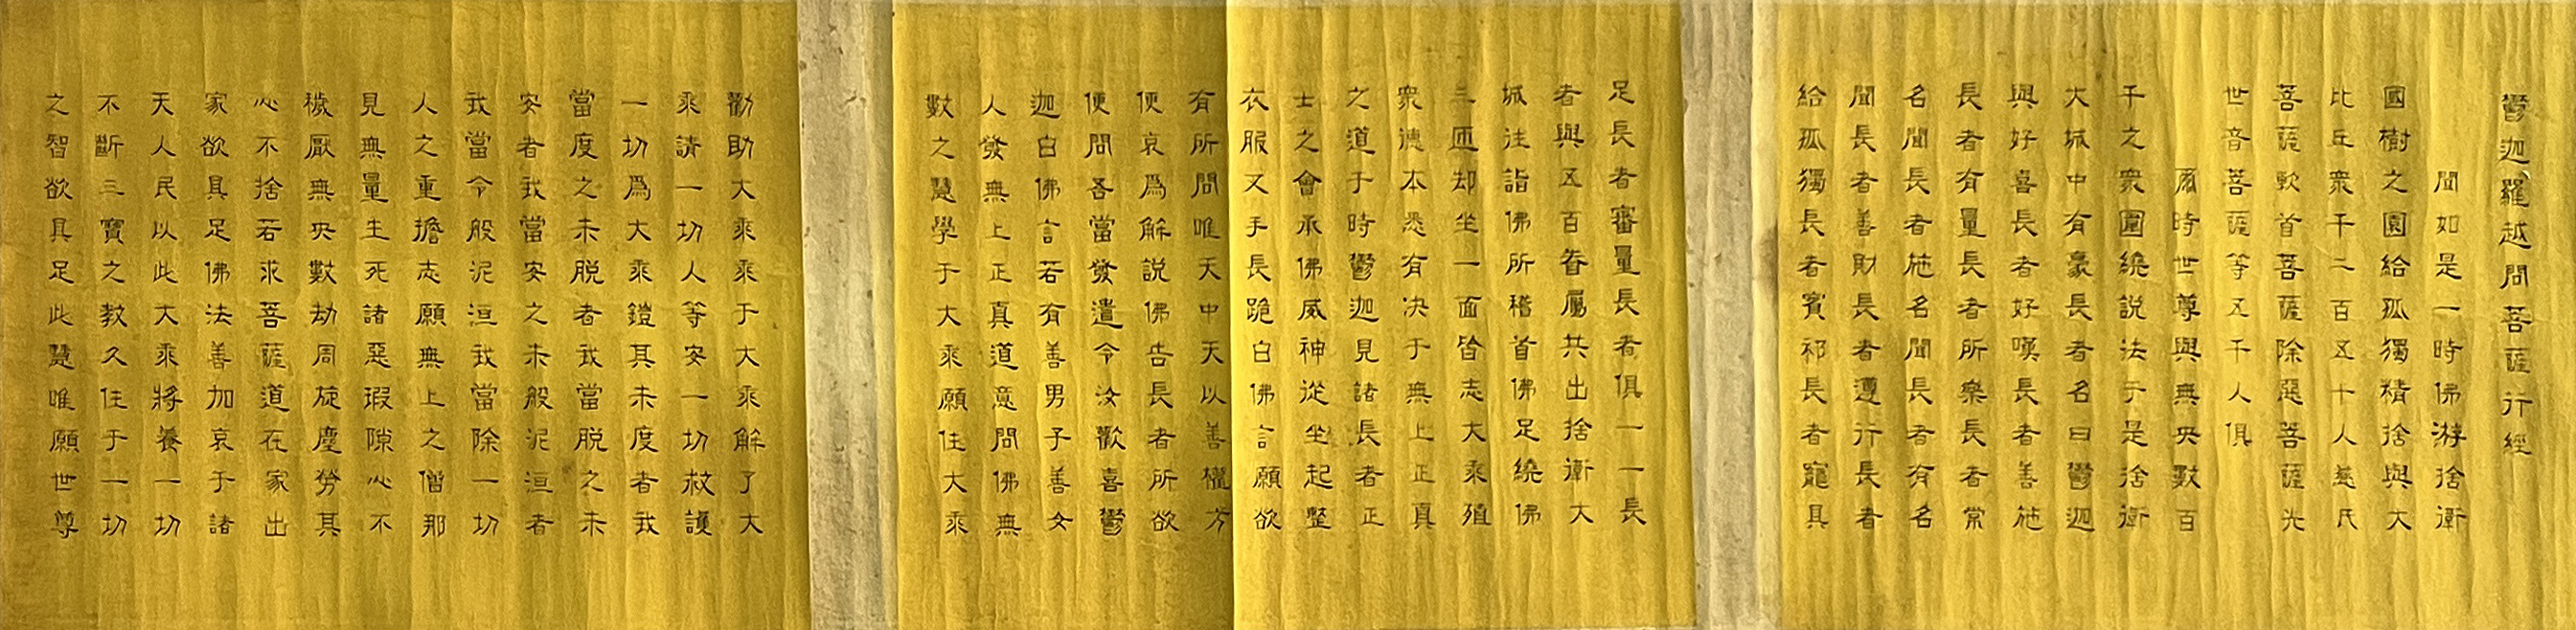 鬱迦羅越問菩薩行經
聞如是一時佛游捨衛
國樹之園給孤獨精捨與大
比丘衆千二百五十人慈氏
菩薩軟首菩薩除惡菩薩光
世音菩薩等五千人俱
爾時世尊與無央數百
千之衆圍繞說法于是捨衛
大城中有豪長者名曰鬱迦
與好喜長者好嘆長者善施
長者有量長者所樂長者常
名聞長者施名聞長者有名
聞長者善財長者遵行長者
給孤獨長者賓祁長者寵具
足長者審量長者俱一一長
者與五百眷屬共出捨衛大
城往詣佛所稽首佛足繞佛
三匝却坐一面皆志大乘殖
衆德本悉有决于無上正真
之道于時鬱迦見諸長者正
士之會承佛威神從坐起整
衣服叉手長跪白佛言願欲
有所問唯天中天以善權方
便哀爲解說佛告長者所欲
便問吾當發遣令汝歡喜鬱
迦白佛言若有善男子善女
人發無上正真道意問佛無
數之慧學于大乘願住大乘
勸助大乘乘于大乘解了大
乘請一切人等安一切救護
一切爲大乘鎧其未度者我
當度之未脱者我當脱之未
安者我當安之未般泥洹者
我當令般泥洹我當除一切
人之重擔志願無上之僧那
見無量生死諸惡瑕隙心不
穢厭無央數劫周旋塵勞其
心不捨若求菩薩道在家出
家欲具足佛法善加哀于諸
天人民以此大乘將養一切
不斷三寶之教久住于一切
之智欲具足此慧唯願世尊